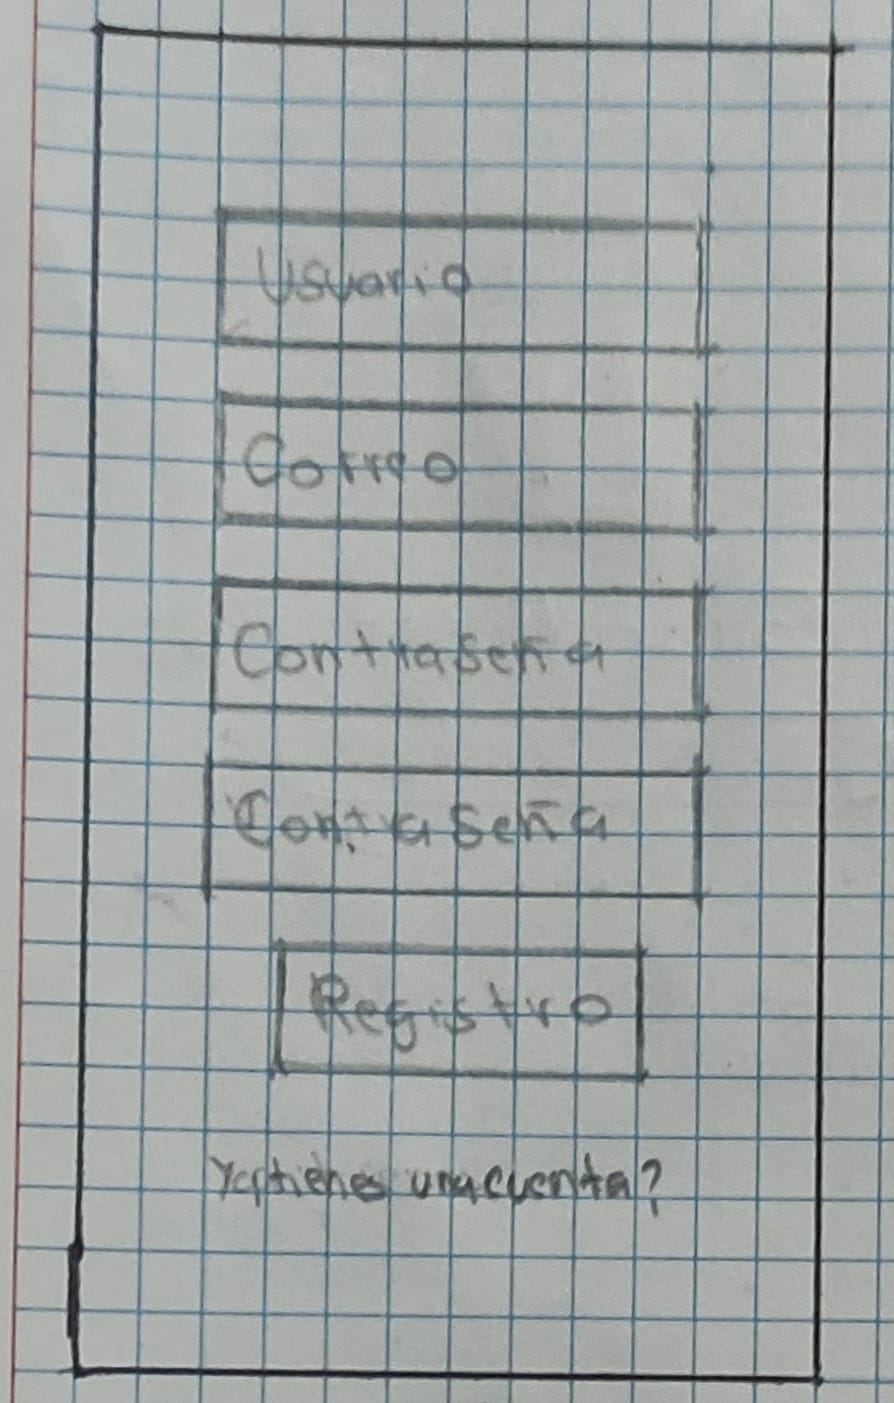 Usuario
Correo
Contraseña
Contraseña
Registro
Ya tienes una cuenta?